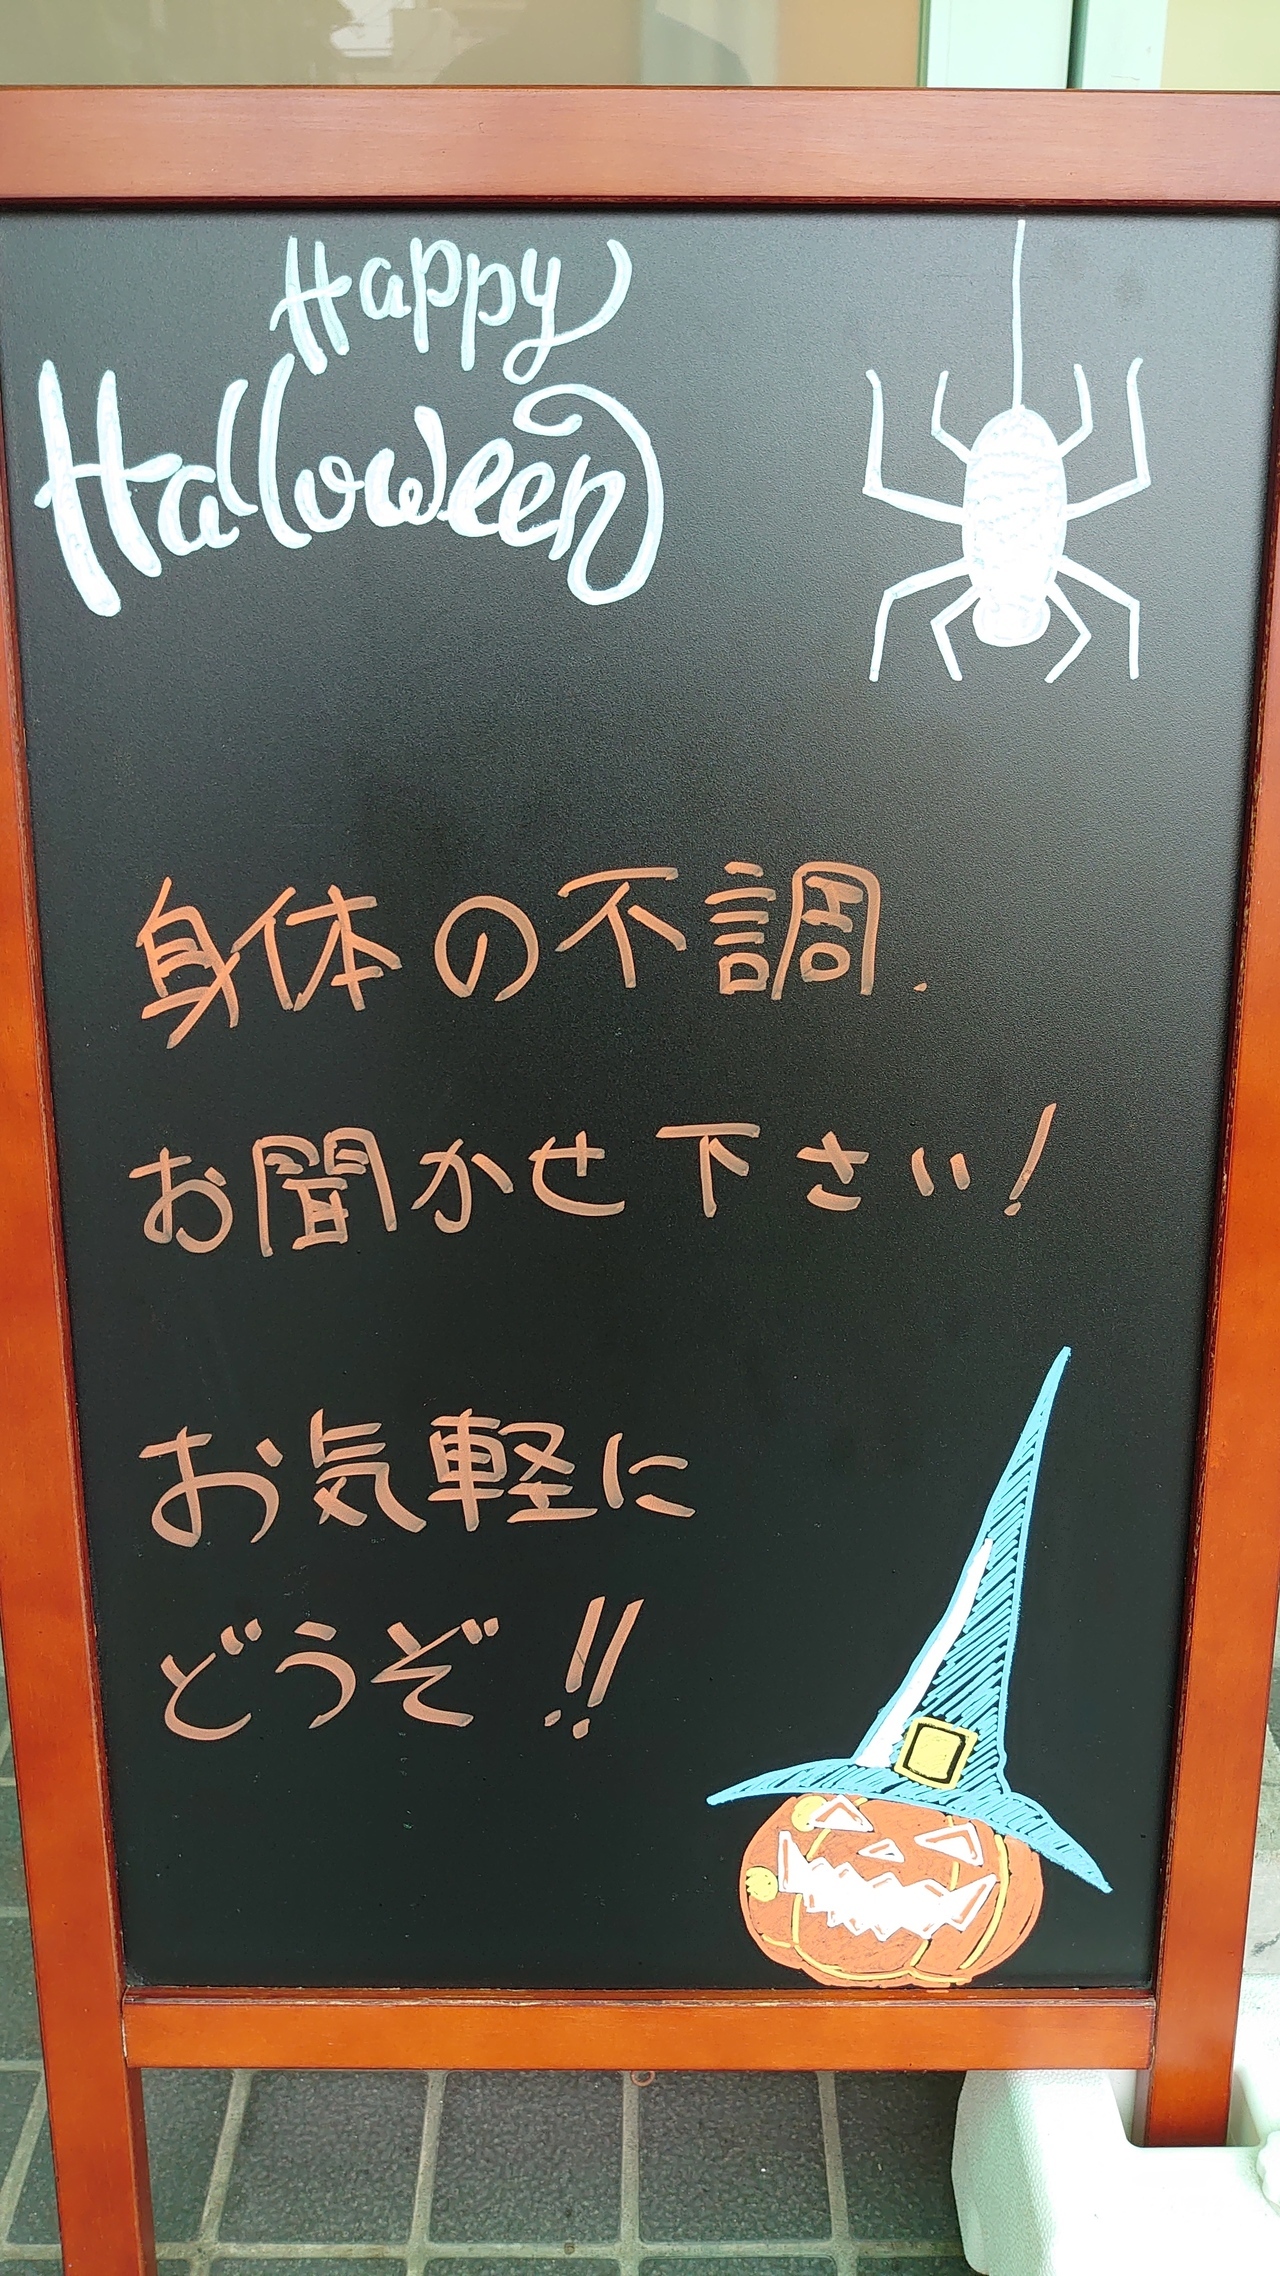 Happy
Halloween
身体の不調.
お聞かせ下さい!
お気軽に
どうぞ!!